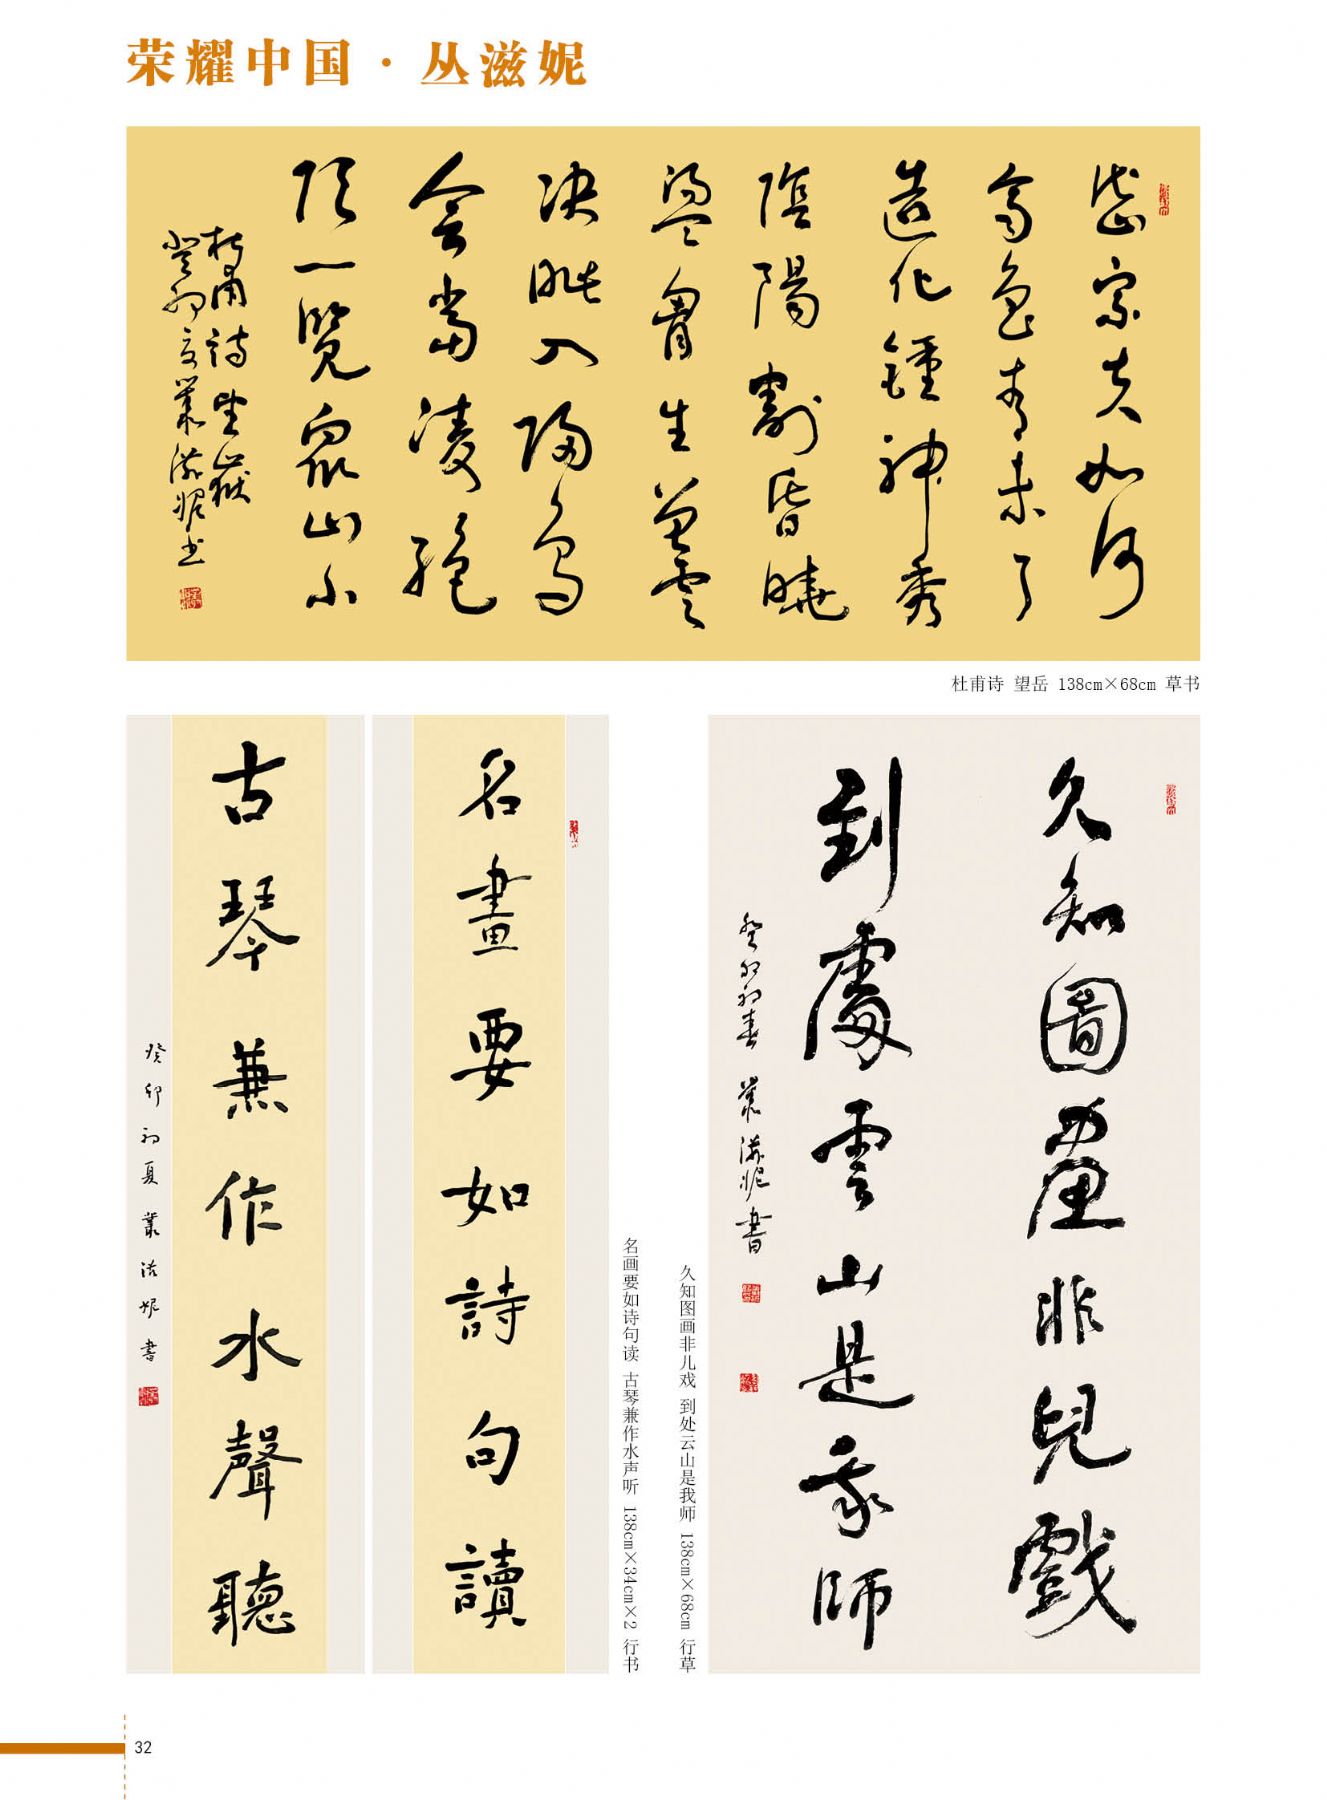 荣耀中国·丛滋妮
岱宗夫如何
齊魯青未了
造化鍾神秀
陰陽割昏曉
盪胷生曾雲
决眦入歸鳥
會當凌絶
頂一覽衆山小
杜甫詩望嶽
癸卯夏叢滋妮书
杜甫诗 望岳 138cm×68cm 草书
名畫要如詩句讀
古琴兼作水聲聽
癸卯初夏叢滋妮書
名画要如诗句读 古琴兼作水声听 138cm×34cm×2 行书
久知圖畫非兒戲
到處雲山是我師
癸卯初春 叢滋妮書
久知图画非儿戏 到处云山是我师 138cm×68cm 行草
32